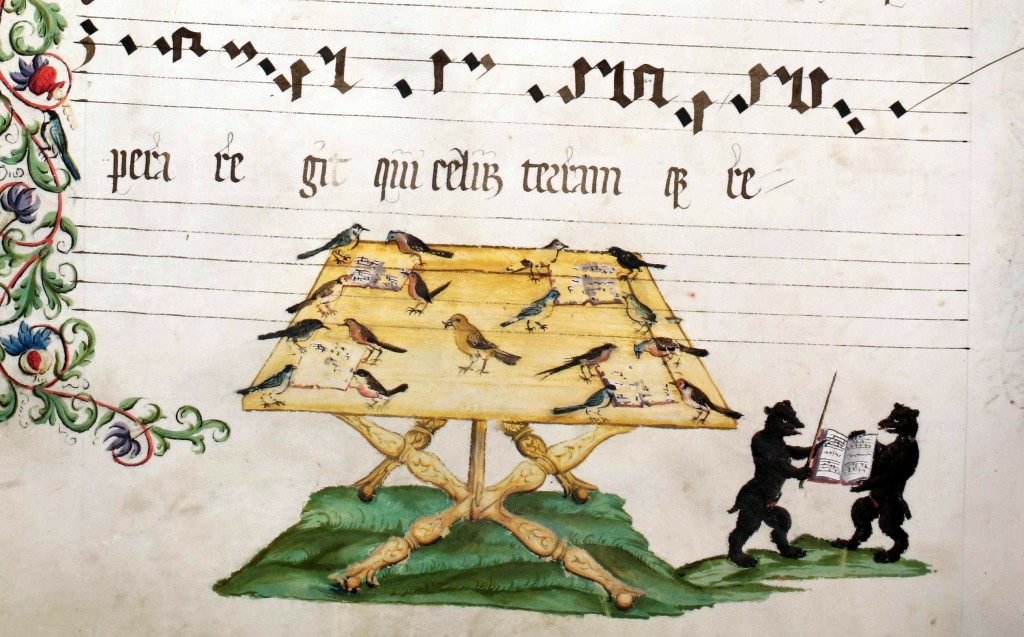 pera re git qui celuꝫ terram qꝫ re